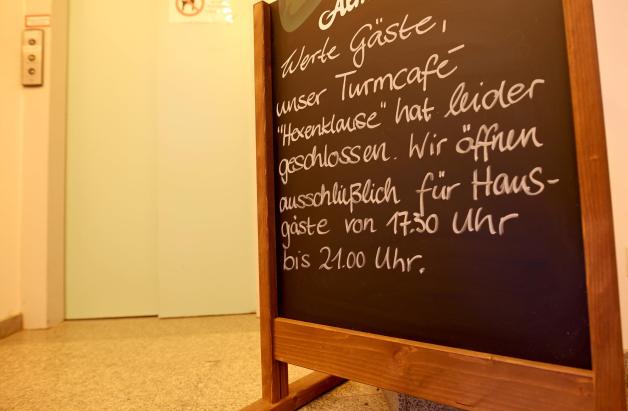 Werte Gäste,
unser Turmcafé
"Hexenklause" hat leider
geschlossen. Wir öffnen
ausschließlich für Haus-
gäste von 17.30 Uhr
bis 21.00 Uhr.